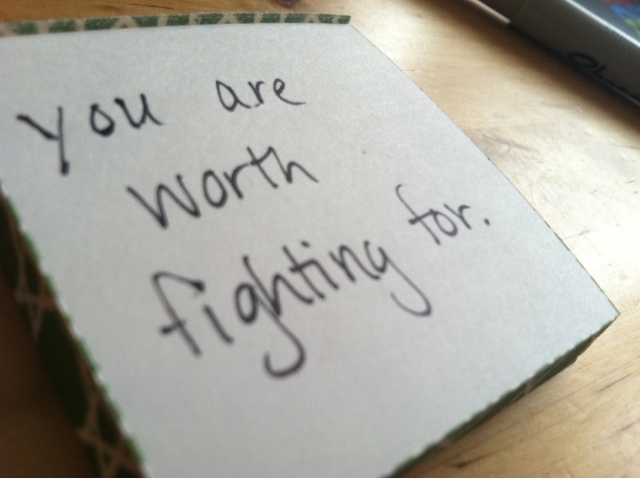 you are
worth
fighting for.